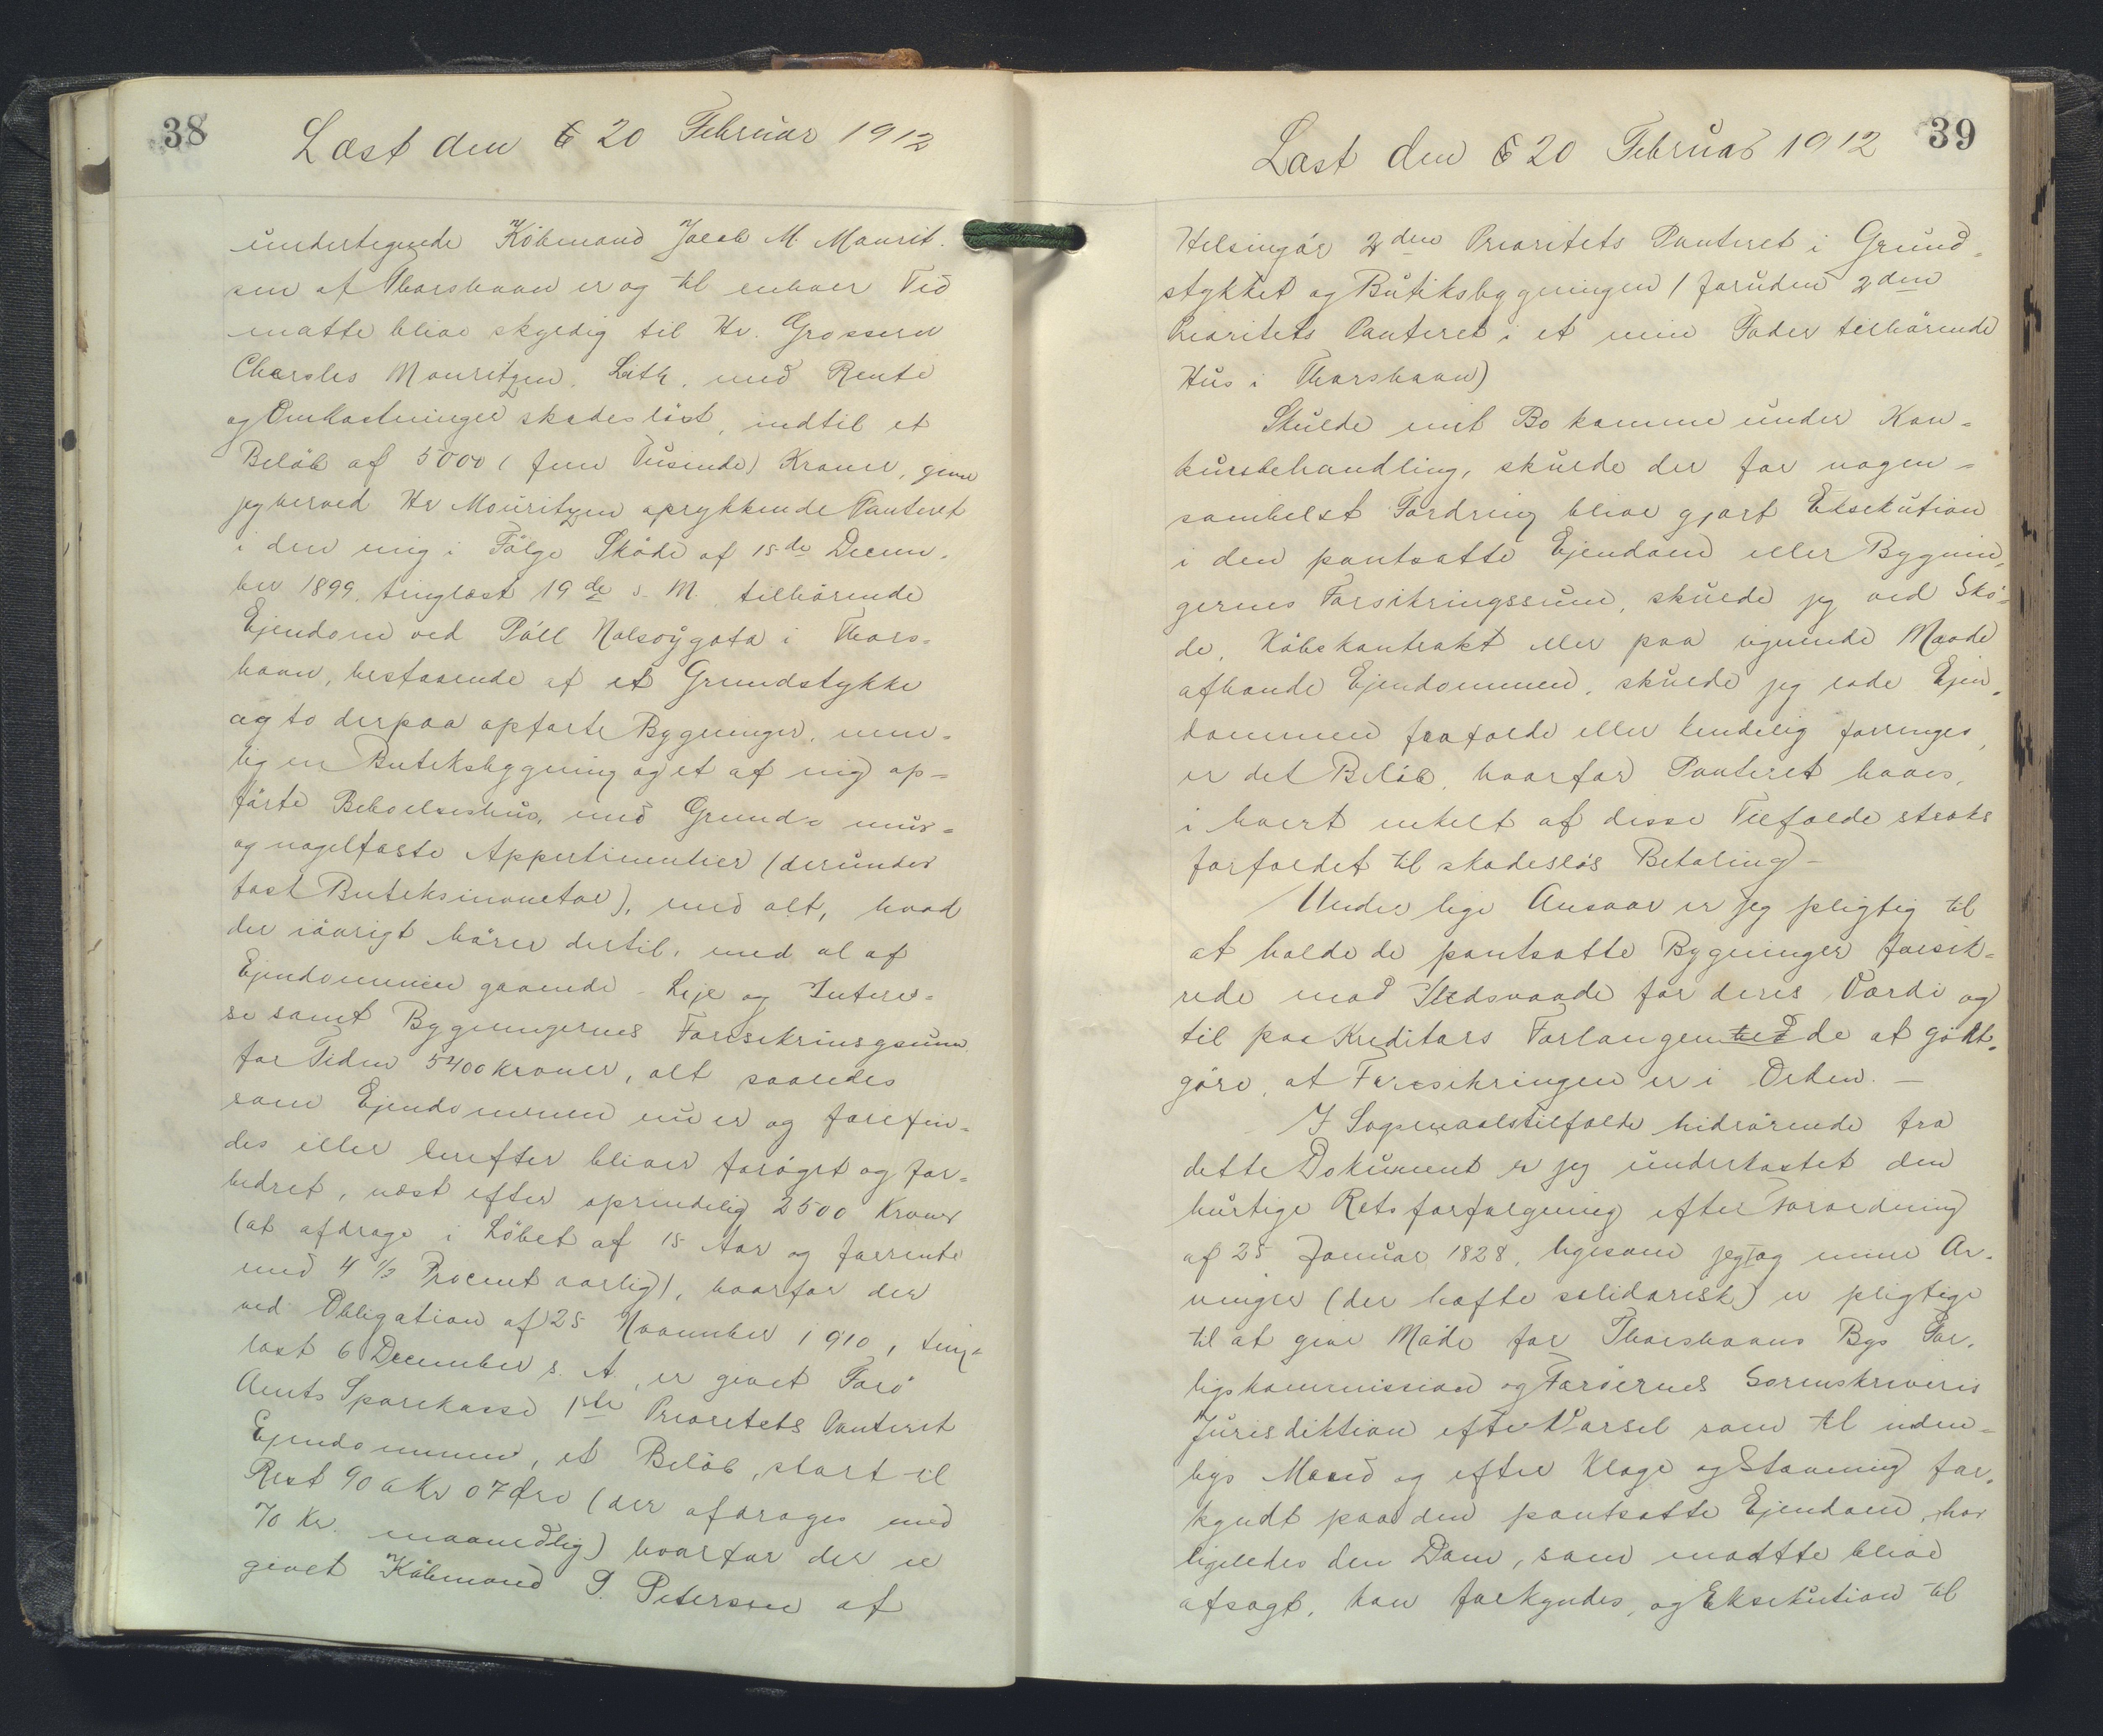 38
Læst den 6 20 Februar 1912
undertegnede Köbmand Jacob M. Mourit.
sen af Thorshavn er og til enhver Tid
maatte blive skyldig til Hr. Grosserer
Charsles Mouritzen, Leith, med Rente
og Omkostninger skadeslöst, indtil et
Belöb af 5000 (fem Tusinde) Kroner, giver
jeg herved Hr Mouritzen oprykkende Panteret
i den mig i Fölge Sköde af 15de Decem-
ber 1899, tinglæst 19de s. M. tilhörende
Ejendom ved Páll Nolsoÿgota i Thors=
havn, bestaaende af et Grundstykke
og to derpaa opförte Bygninger, nem=
lig en Butiksbygning og et af mig op=
förte Beboelseshus, med Grund= mur=
og nagelfaste Appertinentier (derunder
fast Butiksinventar), med alt, hvad
der iövrigt hörer dertil, med al af
Ejendommen gaaende Leje og Interes=
se samt Bygningernes Forsikringssum
for Tiden 5400 Kroner, alt saaledes
som Ejendommen nu er og forefin=
des eller herefter bliver foröget og for=
bedret, næst efter oprindelig 2500 Kroner
(at afdrage i Löbet af 15 Aar og forrente
med 4 1/2 Procent aarlig), hvorfor der
ved Obligation af 25 November 1910, ting=
læst 6 December s. A., er givet Færö
Amts Sparekasse 1ste Prioritets Panteret
Ejendommen, et Belöb, stort til
Rest 906 Kr 07 Öre (der afdrages med
70 Kr. maanedlig) hvorfor der er
givet Köbmand P. Petersen af
39
Læst den 6 20 Februar 1912
Helsingör 2den Prioritets Panteret i Grund=
stykket og Butiksbygningen (foruden 2den
Prioritets Panteret i et min Fader tilhörende
Hus i Thorshavn)
Skulde mit Bo komme under Kon=
kursbehandling, skulde der for nogen=
somhelst Fordring blive gjort Eksekution
i den pantsatte Ejendom eller Bygnin,
gernes Forsikringssum, skulde jeg ved Skö=
de, Köbekontrakt eller paa lignende Maade
afhænde Ejendommen, skulde jeg lade Ejen,
dommen forfalde eller kendelig forringes,
er det Belöb, hvorfor Panteret haves,
i hvert enkelt af disse Tilfælde straks
forfaldet til skadeslös Betaling -
Under lige Ansvar er jeg pligtig til
at holde de pantsatte Bygninger forsik=
rede mod Ildsvaade for deres Værdi og
til paa Kreditors Forlangende at godt=
göre, at Forsikringen er i Orden. -
I Sögsmaalstilfælde hidrörende fra
dette Dokument er jeg underkastet den
hurtige Retsforfölgning efter Forordning
af 25 Januar 1828, ligesom jeg og mine Ar-
vinger (der hæfte solidarisk) er pligtige
til at give Möde for Thorshavns Bys For-
ligskommission og Færöernes Sorenskriveris
Jurisdiktion efter Varsel som til inden=
bys Mænd og efter Klage og Stævning for,
kyndt paa den pantsatte Ejendom, hvor
ligeledes den Dom, som maatte blive
afsagt, kan forkyndes, og Eksekution til